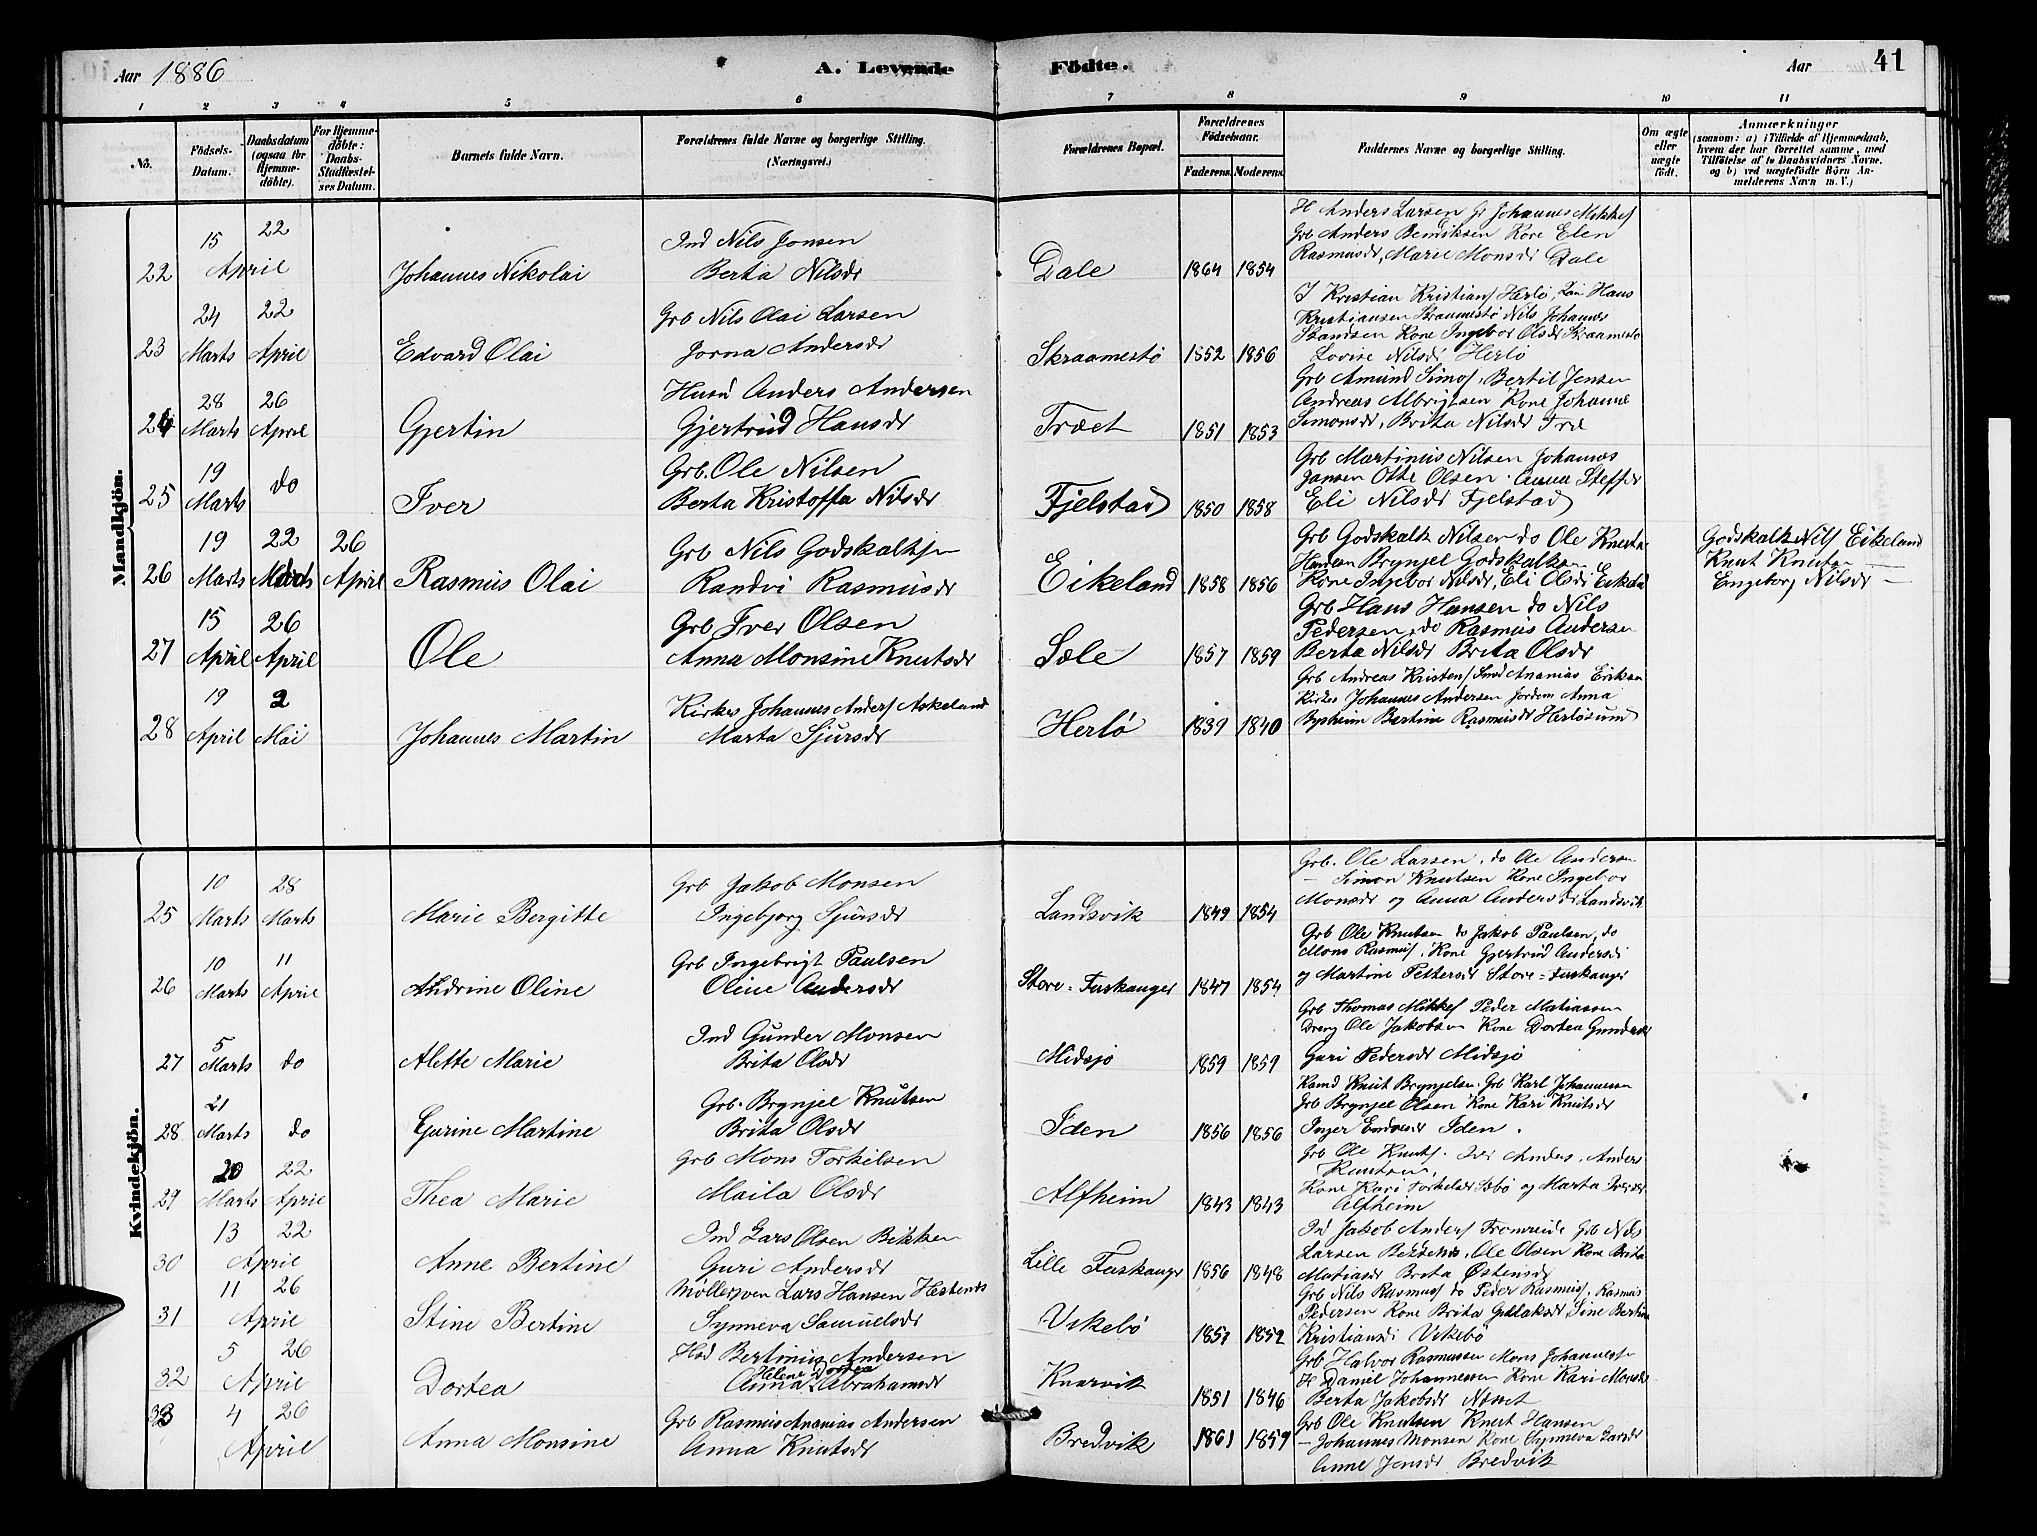 Aar 1886
A. Levende Födte.
Aar 41
1 2 3 4 5 6 7 8 9 10 11
No.
Födsels-Datum.
Daabsdatum (ogsaa for Hjemmedöbte).
For Hjemmedöbte: Daabs-Stadfæstelses Datum.
Barnets fulde Navn.
Forældrenes fulde Navne og borgerlige Stilling. (Næringsvei.)
Forældrenes Bopæl.
Forældrenes Födselsaar.
Faderens. Moderens.
Faddernes Navne og borgerlige Stilling.
Om ægte eller uægte födt.
Anmærkninger
(saasom: a) i Tilfælde af Hjemmedaab, hvem der har forrettet samme, med Tilföielse af to Daabsvidners Navne, og b) ved uægtefödte Börn Anmelderens Navn m. V.)
Mandkjön.
22 15 April 22 Johannes Nikolai
Ind Nils Jonsen
Berta Nilsdr
Dale 1864 1854
H Anders Larsen Gr Johannes Mikkels
Grb Anders Bendiksen Kone Elen
Rasmusdr, Marie Monsdr Dale
23 24 Marts 22 April Edvard Olai
Grb Nils Olai Larsen
Jorna Andersdr
Skraamestö 1852 1856
J Kristian Kristians Herlö, Hans
Kristiansen Skraamestö Nils Johannes
Kone Ingebor Olsdr Skraamestö
Lovise Nilsdr Herlö
24 28 Marts 26 April Gjertin
Husm Anders Andersen
Gjertrud Hansdr
Træet 1851 1853
Grb Amund Simos, Bertil Jensen
Andreas Albrigtsen Kone Johanne
Simonsdr, Brita Nilsdr Træ
25 19 Marts do Iver
Grb. Ole Nilsen
Berta Kristoffa Nilsdr
Fjelstad 1850 1858
Grb Martinus Nilsen Johannes
Jansen Otte Olsen Anna Steffdr
Eli Nilsdr Fjelstad
26 19 Marts 22 Marts 26 April Rasmus Olai
Grb Nils Godskalksn
Randvi Rasmusdr
Eikeland 1858 1856
Grb Godskalk Nilsen do Ole Knuts
Brynjel Godskalksen
Kone Ingebor Nilsdr, Eli Olsdr Eikeland
Godskalk Nils Eikeland
Knut Knutsn
Engeborg Nilsdr —
27 15 April 26 April Ole
Grb Iver Olsen
Anna Monsine Knutsdr
Sæle 1857 1859
Grb Hans Hansen do Nils
Pedersen, do Rasmus Andersen
Berta Nilsdr Brita Olsdr
28 19 April 2 Mai Johannes Martin
Kirkes Johannes Anders Askeland
Marta Sjursdr
Herlö 1839 1840
Grb Andreas Kristens Ananias Eriksen
Kirkes Johannes Andersen Jordem Anna
Bertine Rasmusdr Herlösund
Kvindekjön.
25 10 Marts 28 Marts Marie Bergitte
Grb Jakob Monsen
Ingebjorg Sjursdr
Landsvik 1849 1854
Grb. Ole Larsen, do Ole Andersen
— Simon Knutsen Kone Ingebor
Monsdr og Anna Andersdr Landsvik
26 10 Marts 11 April Andrine Oline
Grb Ingebrigt Paulsen
Oline Andersdr
Store-Fuskanger 1847 1854
Grb Ole Knutsen do Jakob Paulsen, do
Mons Rasmus, Kone Gjertrud Andersdr
og Martine Pettersdr Store-Fuskanger
27 5 Marts do Alette Marie
Ind Gunder Monsen
Brita Olsdr
Midsjö 1859 1859
Grb Thomas Mikkels Peder Matiassen
Dreng Ole Jakobsen Kone Dortea Gundersdr
Guri Pedersdr Midsjö
28 21 Marts do Gurine Martine
Grb. Brynjel Knutsen
Brita Olsdr
Iden 1856 1856
Kaard Knut Brynjelsen, Grb Karl Johannesen
Grb Brynjel Olsen Kone Kari Knutsdr
Inger Iden.
29 20 Marts 22 April Thea Marie
Grb Mons Torkelsen
Maila Olsdr
Alfheim 1843 1843
Grb Ole Knuts. Iver Anders. Anders
Knutsen,
Kone Kari Torkelsdr Sæbö og Marta Iversdr
Alfheim
30 13 April 22 Anne Bertine
Ind Lars Olsen Bekken
Guri Andersdr
Lille Fuskanger 1856 1848
Ind Jakob Anders Fromreide Grb Nils
Larsen Ole Olsen Kone Brita
Matiasdr Brita Östensdr
31 11 April 26 Stine Bertine
Möllersven Lars Hansen Hestenes
Synneva Samuelsdr
Vikebö 1857 1852
Grb Nils Rasmus do Peder Rasmus, Rasmus
Pedersen Kone Brita Gutlaksdr, Sine Bertine
Kristiansdr Vikebö
32 5 April 26 Dortea
Hsd Bertinius Andersen
Helene Dortea
Anna Abrahamsdr
Knarvik 1851 1846
Grb Halvor Rasmussen Mons Johannesn
H Daniel Johannessen Kone Kari Monsdr
Berta Jakobsdr Næset
33 4 April 26 Anna Monsine
Grb Rasmus Ananias Andersen
Anna Knutsdr
Bredvik 1861 1859
Grb Ole Knutsen Knut Hansen
— Johannes Monsen Kone Synneva Larsdr
Anne Jensdr Bredvik